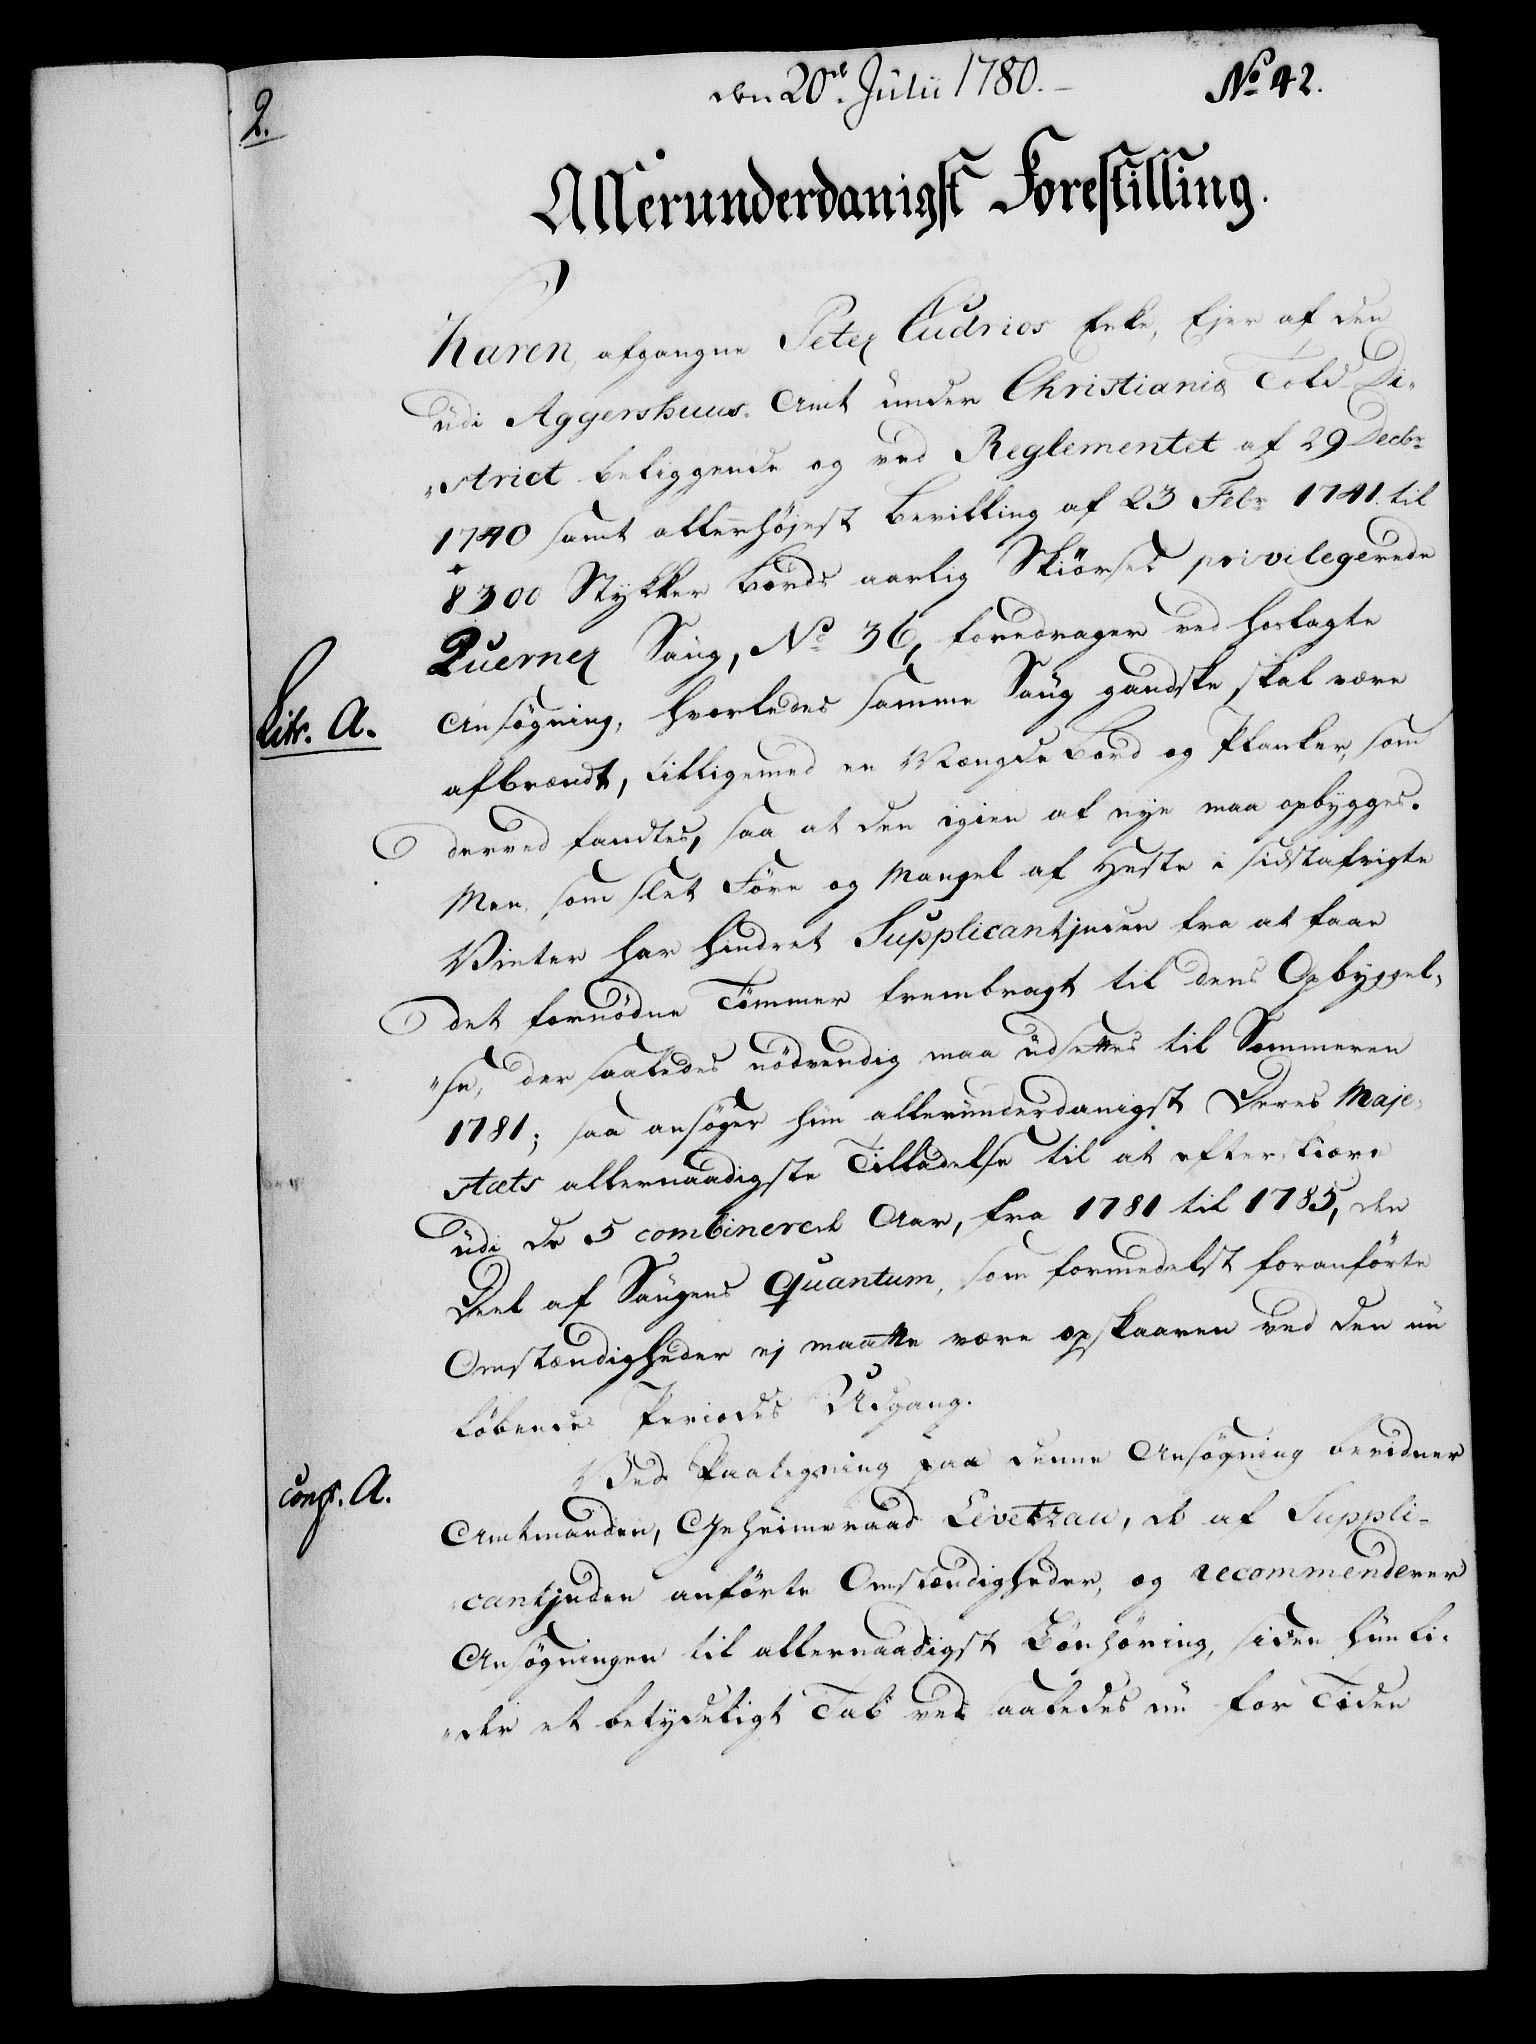 2.
den 20de Julii 1780.
No 42.
Allerunderdanigst Forestilling.
Karen, afgangne Peter Cudrios Enke, Ejer af den
udi Aggershuus Amt under Christiania Told-Di-
„strict beliggende og ved Reglementet af 29 Decbr
1740 samt allerhøjest Bevilling af 23 Febr 1741 til
8300 Stykker Bords aarlig Skiørsel privilegerede
Querner Saug, No 36, foredrager ved hoslagte
Litr. A.
Ansøgning, hvorledes samme Saug gandske skal være
afbrændt, tilligemed en Mængde Bord og Planker, som
derved fandtes, saa at den igien af nye maa opbygges.
Men som slet Føre og Mangel af Heste i sidstafvigte
Vinter har hindret Supplicantjnden fra at faae
det fornødne Tømmer frembragt til dens Opbyggel-
„se, der saaledes nødvendig maa udsettes til Sommeren
1781; saa ansøger hun allerunderdanigst Deres Maje-
stæts allernaadigste Tilladelse til at efterskiære
udi de 5 combinerede Aar, fra 1781 til 1785, den
Deel af Saugens Quantum, som formedelst foranførte
Omstændigheder ej maatte være opskaaren ved den nu
løbende Periodes Udgang.
conf. A.
Ved Paategning paa denne Ansøgning bevidner
Amtmanden, Geheimeraad Levetzau, de af Suppli-
cantjnden anførte Omstændigheder, og recommenderer
Ansøgningen til allernaadigst Bønhøring, siden hun li-
„der et betydeligt Tab ved saaledes nu for Tiden